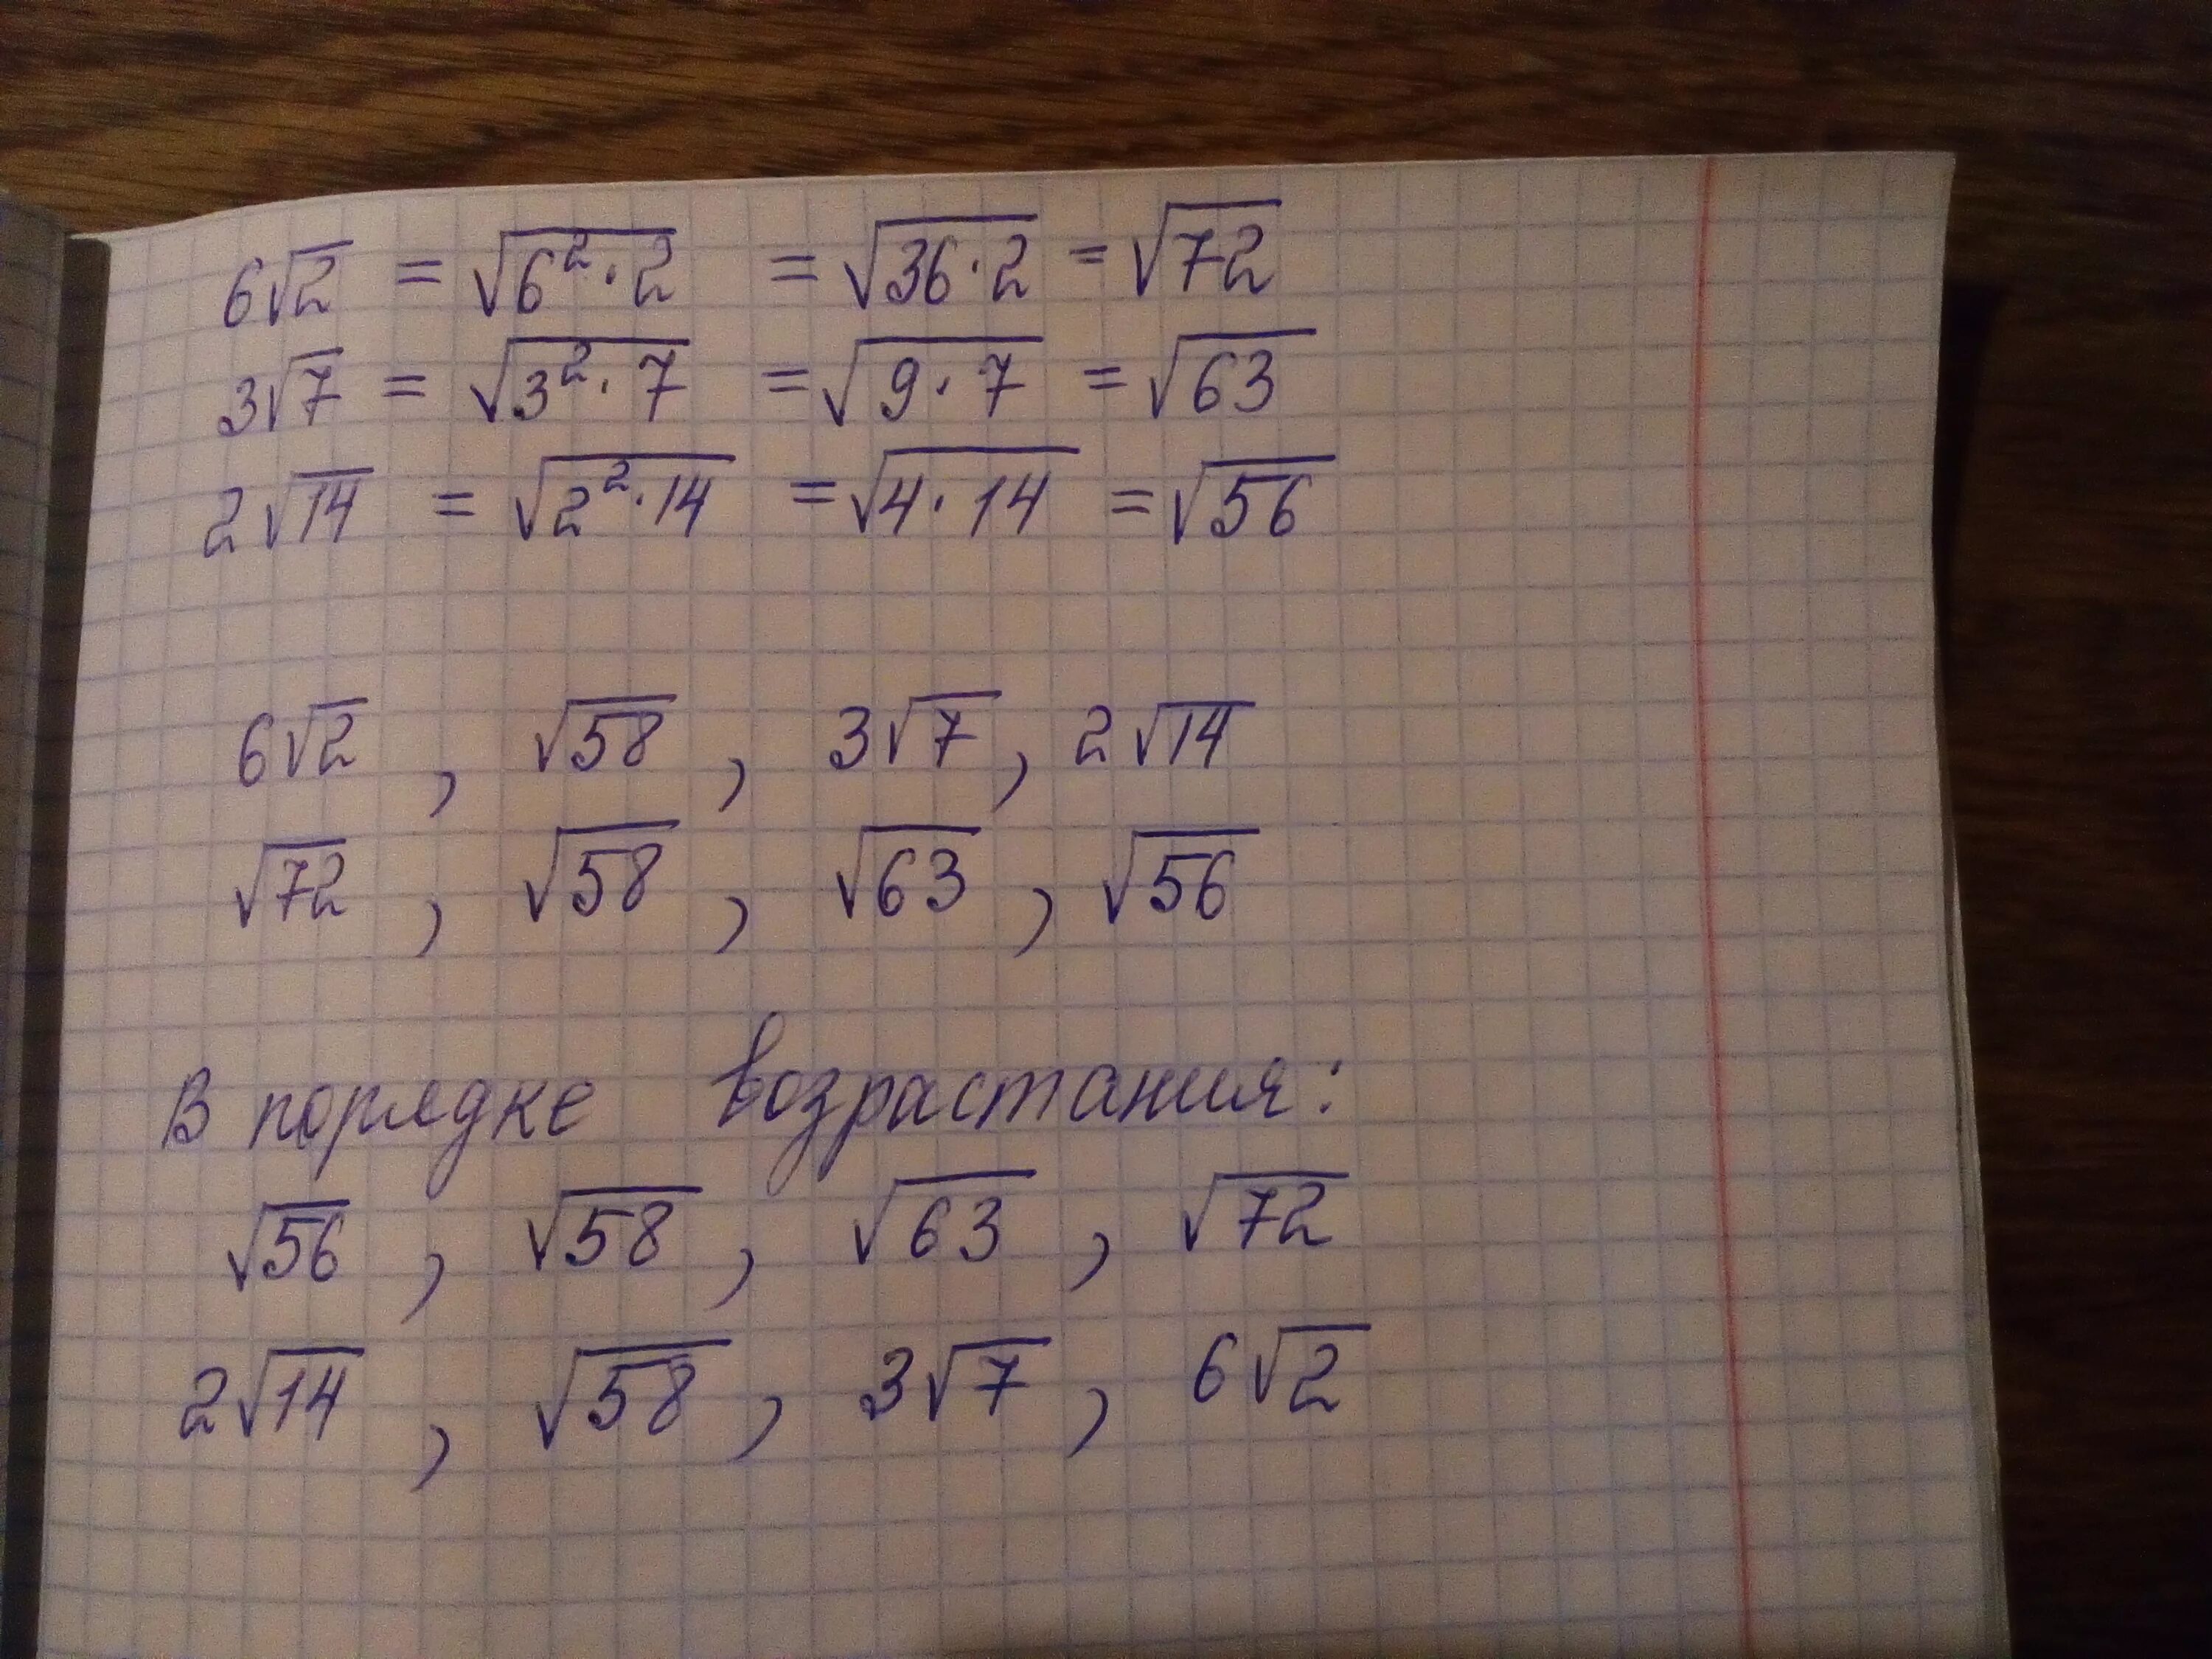 6√2 = √(6²·2) = √(36·2) = √72
3√7 = √(3²·7) = √(9·7) = √63
2√14 = √(2²·14) = √(4·14) = √56
6√2, √58, 3√7, 2√14
√72, √58, √63, √56
В порядке возрастания:
√56, √58, √63, √72
2√14, √58, 3√7, 6√2